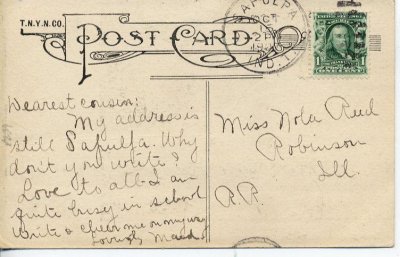 T.N.Y.N.CO.
POST CARD.
SAPULPA
OCT
21
IND. T.
1
Dearest cousin:
My address is
still Sapulpa. Why
don't you write?
Love to all. I am
quite busy in school
Write & cheer me on my way
Lovingly Maud.
Miss Nola Reed
Robinson
Ill.
R.R.